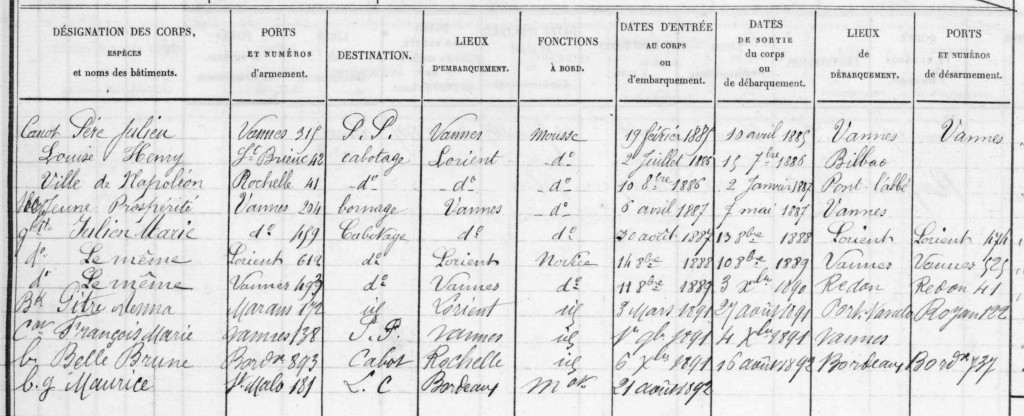 DÉSIGNATION DES CORPS, ESPÈCES et noms des bâtiments. PORTS ET NUMÉROS d'armement. DESTINATION. LIEUX D'EMBARQUEMENT. FONCTIONS À BORD. DATES D'ENTRÉE AU CORPS ou d'embarquement. DATES DE SORTIE du corps ou de débarquement. LIEUX de DÉBARQUEMENT. PORTS ET NUMÉROS de désarmement.
Canot Père Julien Vannes 315 P.P. Vannes Mousse 19 février 1885 10 avril 1885 Vannes Vannes
Louise Henry St Brieuc 42 cabotage Lorient do 2 Juillet 1886 15 7bre 1886 Bilbao
Ville de Napoléon Rochelle 41 do do do 10 8bre 1886 2 Janvier 1887 Pont-l'abbé
Jeune Prospérité Vannes 204 bornage Vannes do 6 avril 1887 7 mai 1887 Vannes
Julien Marie do 459 Cabotage do do 20 août 1887 13 8bre 1888 Lorient Lorient 474
do Le même Lorient 612 do Lorient Novice 14 8bre 1888 10 8bre 1889 Vannes Vannes 525
do Le même Vannes 493 do Vannes do 11 8bre 1889 3 xbre 1890 Redon Redon 41
Marans 172 id Lorient id 3 Mars 1891 27 août 1891 Royan 122
François Marie Vannes 138 P.P. Vannes id 1er 9bre 1891 4 xbre 1891 Vannes
b. Belle Brune Bordx 893 Cabot Rochelle id 6 xbre 1891 16 août 1892 Bordeaux Bordx 737
b.g Maurice St Malo 181 L.C Bordeaux Mot 21 août 1892